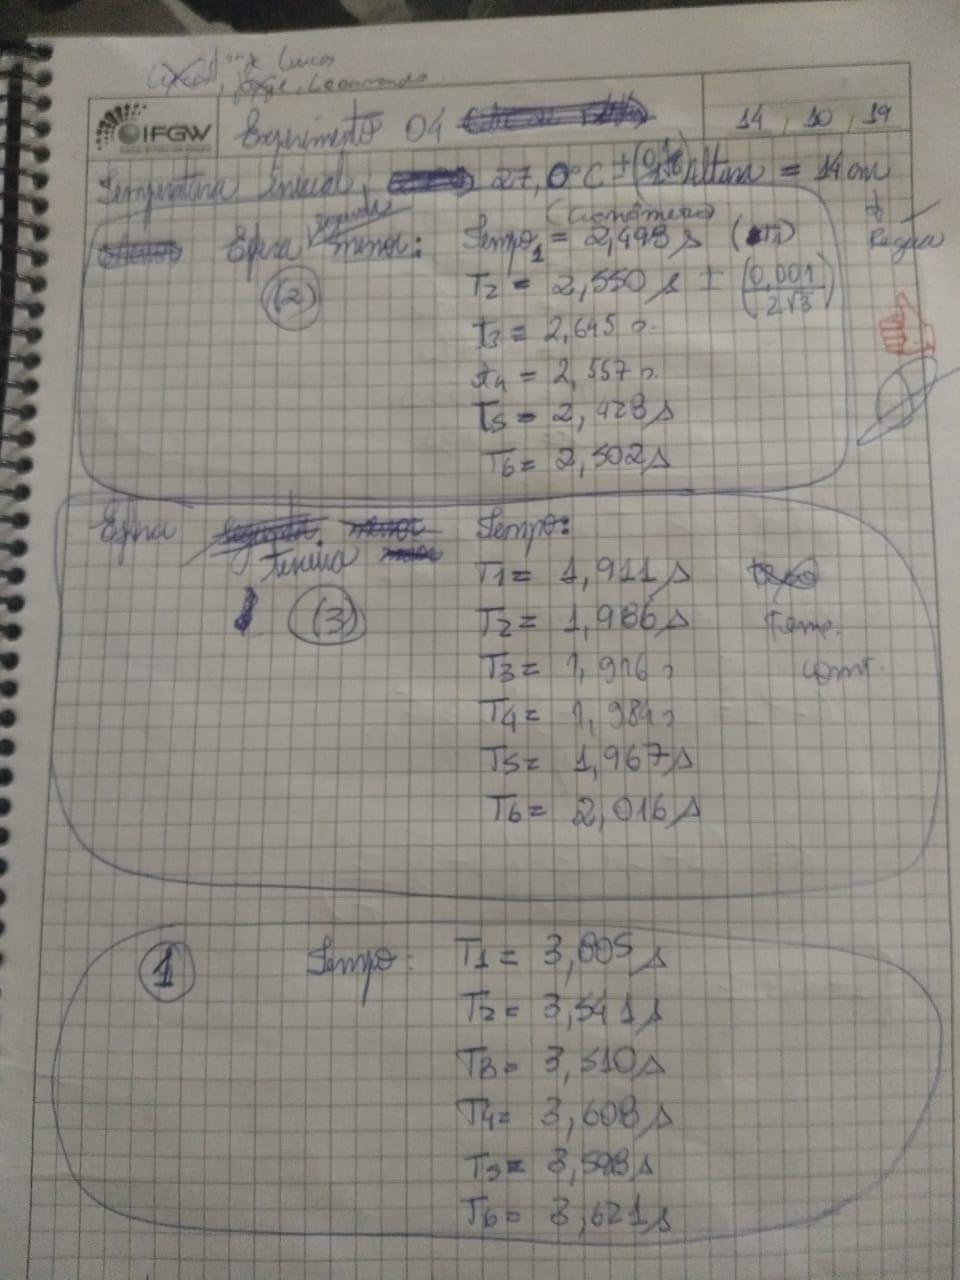 Lucas
Leonardo
IFGW Experimento 04 14, 10, 19
Temperatura inicial, 27,0°C ± Altura = 14 cm
(Cronômetro)
Regua
segunda
Esfera menor: Tempo1 = 2,498 s
(2) T2 = 2,550 s ± (0,001/2√3)
T3 = 2,645 s.
t4 = 2,557 s.
T5 = 2,428 s
T6 = 2,502 s
Esfera Tempo:
Terceira
(3) T1 = 1,911 s
T2 = 1,986 s Temp.
T3 = 1,916 s const.
T4 = 1,984 s
T5 = 1,967 s
T6 = 2,016 s
1 Tempo: T1 = 3,605 s
T2 = 3,541 s
T3 = 3,510 s
T4 = 3,608 s
T5 = 3,598 s
T6 = 3,621 s